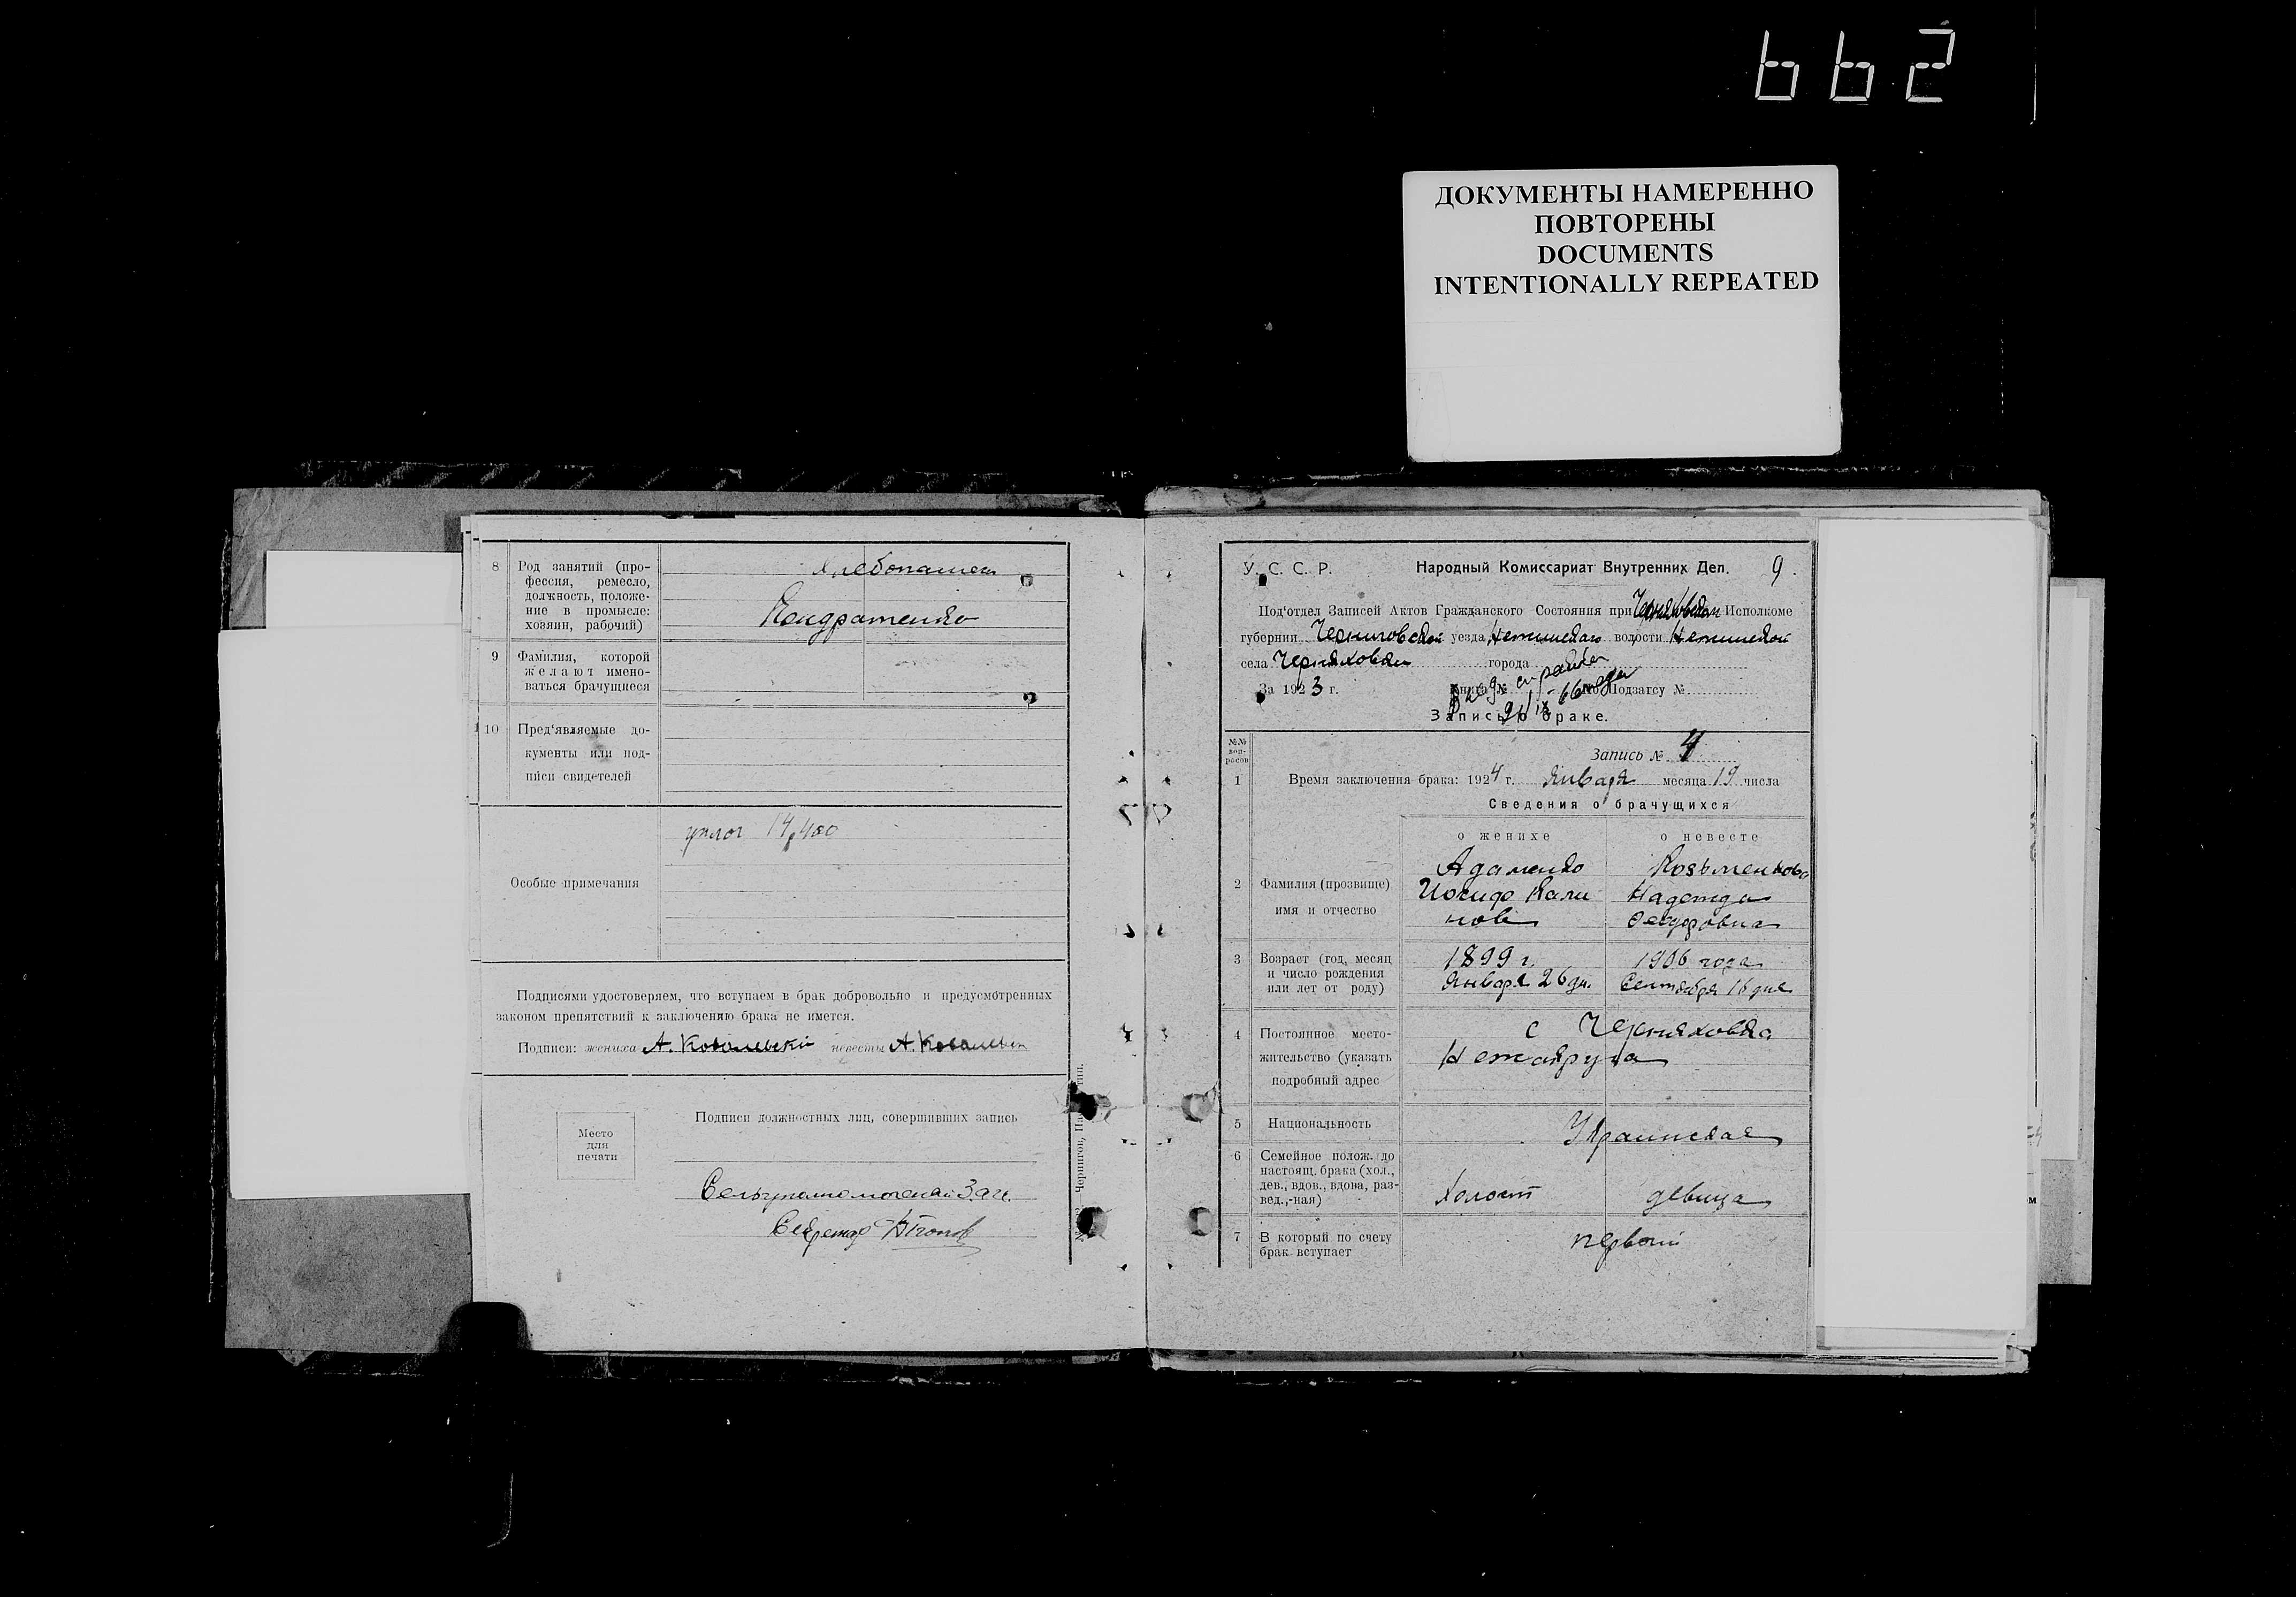 662
ДОКУМЕНТЫ НАМЕРЕННО
ПОВТОРЕНЫ
DOCUMENTS
INTENTIONALLY REPEATED
8 Род занятий (про-
фессия, ремесло,
должность, положе-
ние в промысле:
хозяин, рабочий)
Хлебопашец
Кондратенко
9 Фамилия, которой
желают имено-
ваться брачущиеся
10 Пред'являемые до-
кументы или под-
писи свидетелей
Особые примечания
14,400
Подписями удостоверяем, что вступаем в брак добровольно и предусмотренных
законом препятствий к заключению брака не имется.
Подписи: жениха А. Ковалевский невесты А.
Подписи должностных лиц, совершивших запись
Место
для
печати
Секретар
Чернигов,
У. С. С. Р. Народный Комиссариат Внутренних Дел. 9.
Под'отдел Записей Актов Гражданского Состояния при Исполкоме
губернии Черниговской уезда Нежинскаго волости Нежинской
села Черняховки города
За 1923 г. Книга № По Подзагсу №
Запись о браке.
№№
воп-
росов
Запись № 4
1 Время заключения брака: 1924 г. Января месяца 19 числа
Сведения о брачущихся
о женихе о невесте
2 Фамилия (прозвище)
имя и отчество
Адаменко
Иосиф Кали
нов
Козьменкова
Надежда
Феодоровна
3 Возраст (год, месяц
и число рождения
или лет от роду)
1899 г.
Января 26 дн.
1906 года
Сентября 16 дня
4 Постоянное место-
жительство (указать
подробный адрес
с Черняховка
Неж округа
5 Национальность
Украинская
6 Семейное полож. до
настоящ. брака (хол.,
дев., вдов., вдова, раз-
вед.,-ная)
Холост девица
7 В который по счету
брак вступает
первый